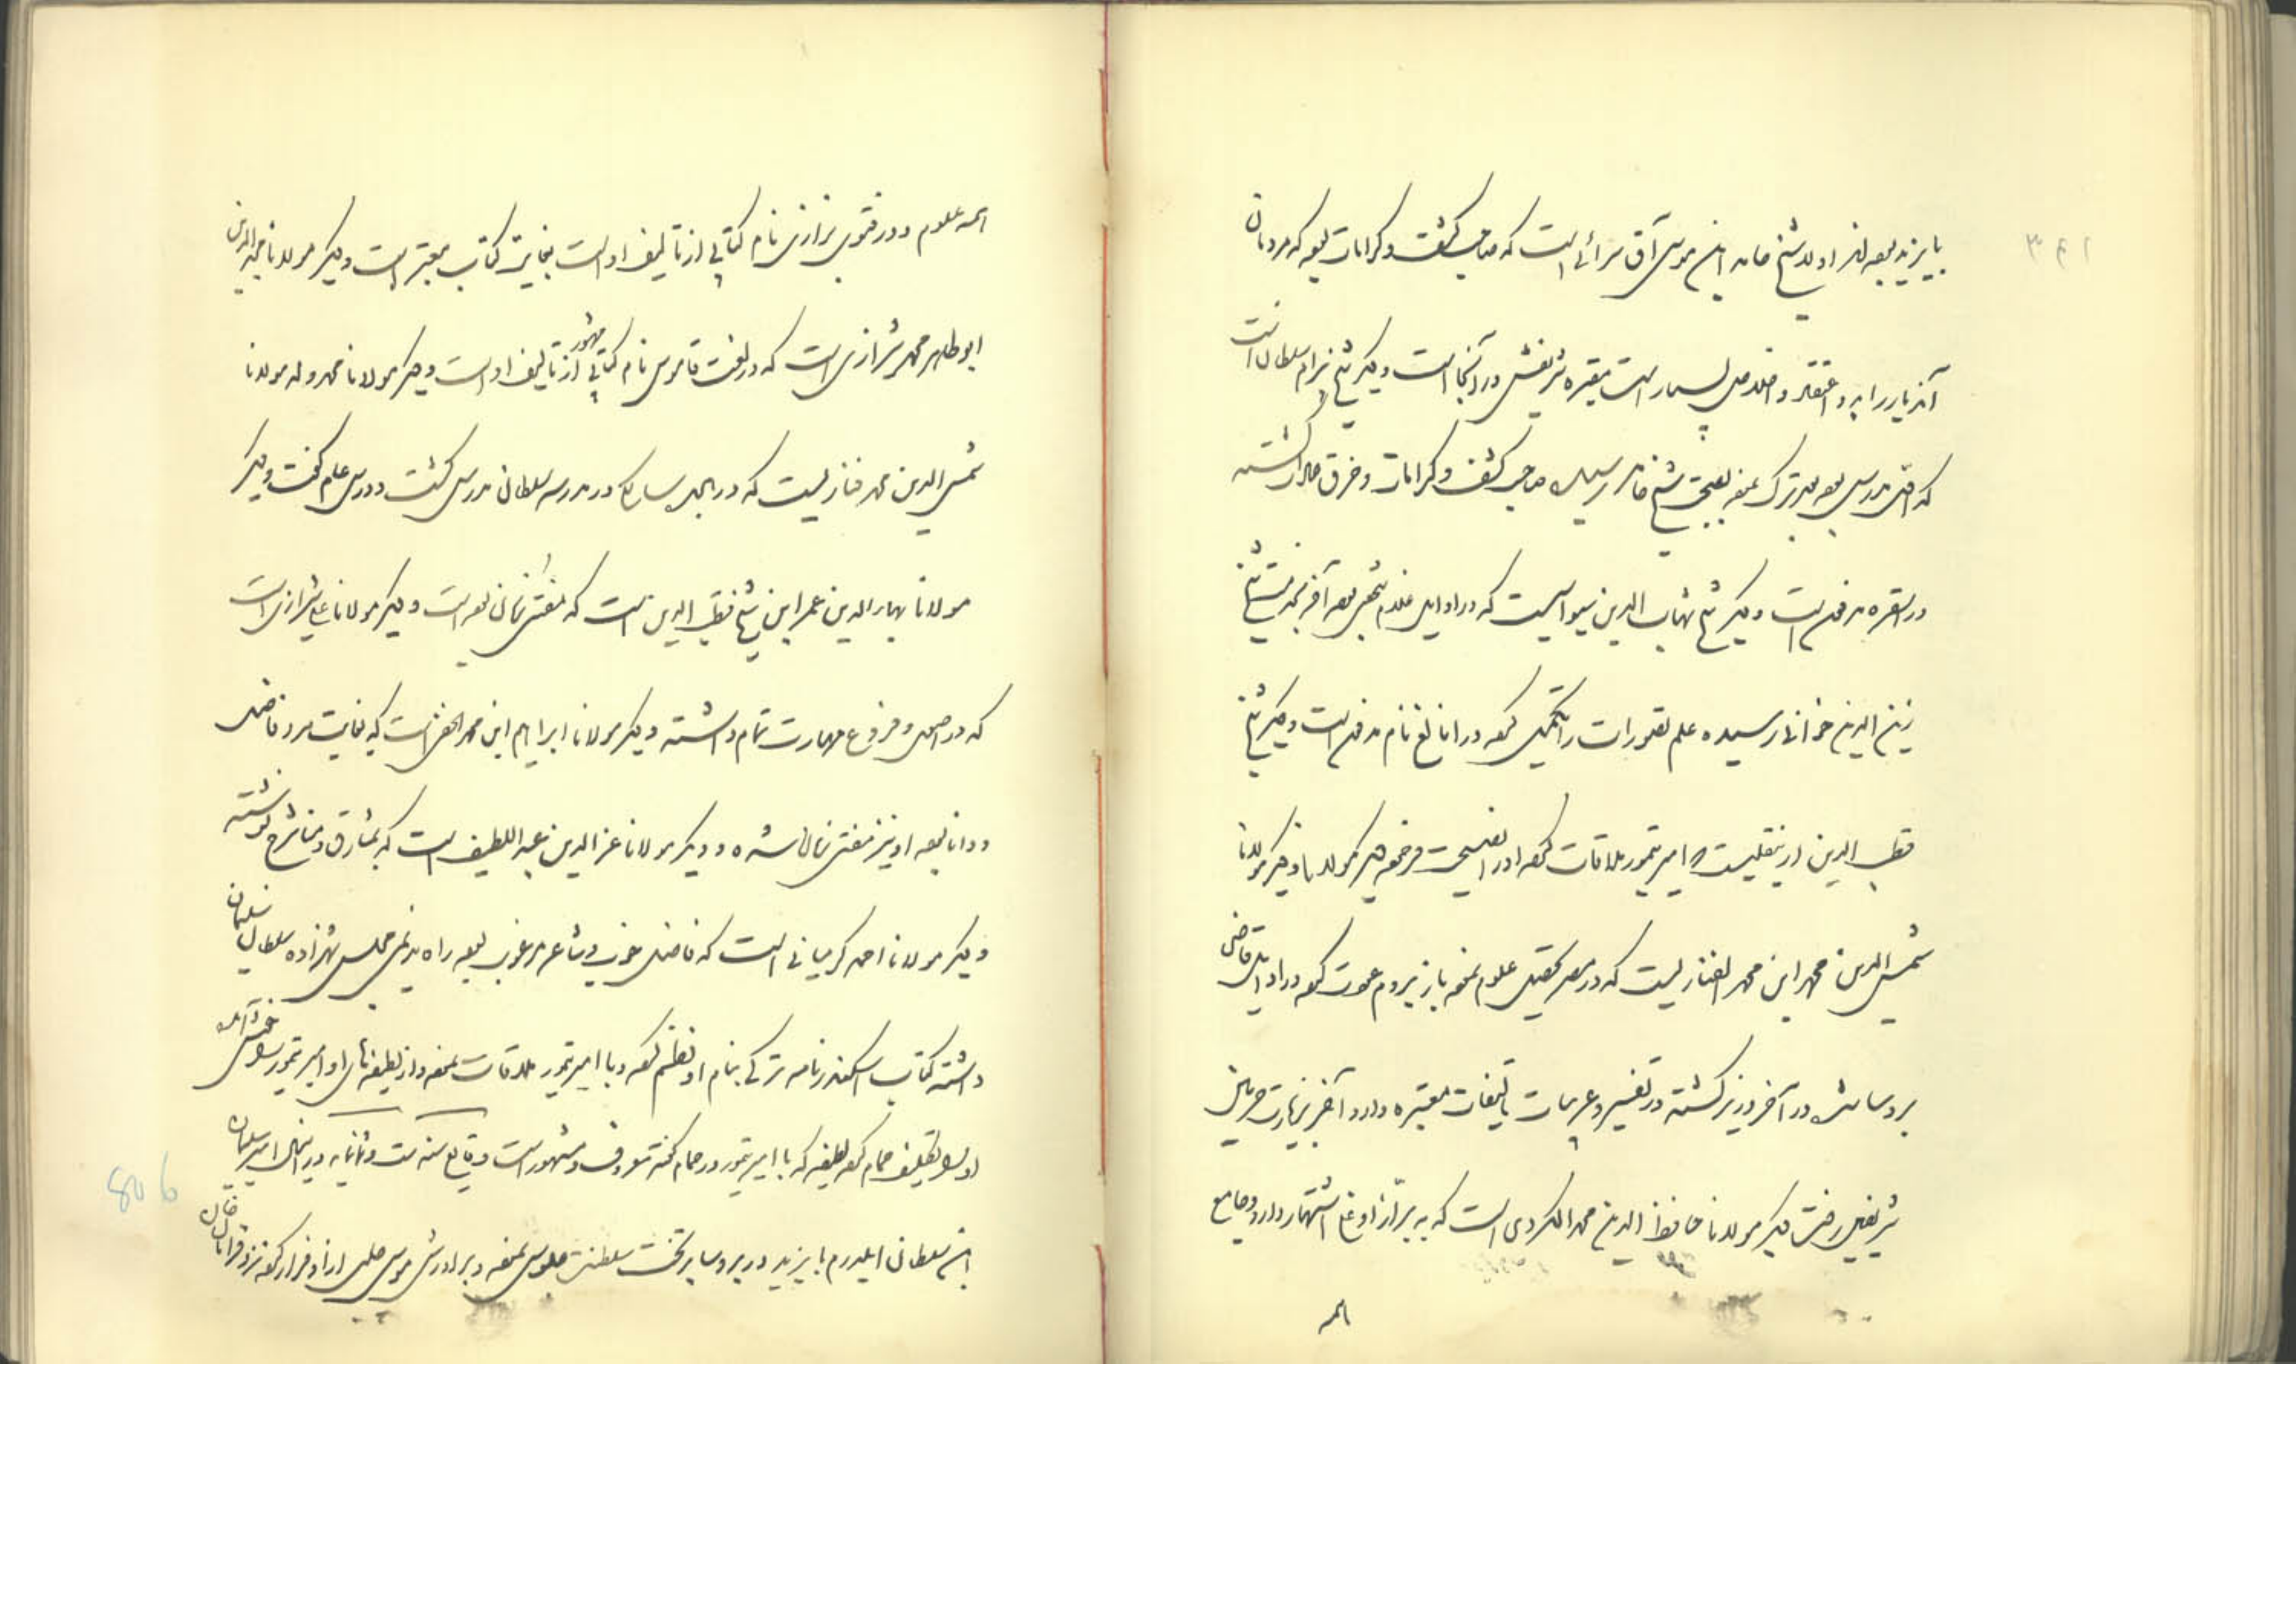 بایزید بوده اند اول شیخ حامد ابن موسی آق سرائی است که صاحب کشف و کرامات بوده که مردمان
آن دیار را به و اعتقاد و اخلاص بسیار است مقبره شریفش در آنجا است و دیکر شیخ بزام سلطان است
که اول مدرس بوده ترک نموده بصحبت شیخ حامد رسیده صاحب کشف و کرامات و خرق عادات کشته
در انقره مدفون است و دیکر شیخ شهاب الدین سیواسیست که در اوایل غلام شخصی بوده آخر بخدمت شیخ
زین الدین خوافی رسیده علم تصورات را تکمیل نموده در ایاثلغ نام مدفون است و دیکر شیخ
قطب الدین ازنیقلیست با امیر تیمور ملاقات نموده او را نصیحت فرموده دیکر مولانا
شمس الدین محمد ابن محمد الفناریست که در مصر تحصیل علوم نموده باز بروم عودت نموده در اوایل قاضی
بروسا شده در آخر وزیر کشته در تفسیر و عربیات تالیفات معتبره دارد آخر بزیارت حرمین
شریفین رفت دیکر مولانا حافظ الدین محمد الکردی است که به بزاز اوغلی اشتهار دارد و جامع
همه
۳۹۱
همه علوم و در فتوی بزازی نام کتابی از تالیف او است بغایت کتاب معتبر است و دیکر مولانا مجدالدین
ابو طاهر محمد شیرازی است که در لغت قاموس نام کتابی مشهور از تالیف او است و دیکر مولانا محمد ولد مولانا
شمس الدین محمد فناریست که در سالکی در مدرسه سلطانی مدرس کشت و درس عام کفت و دیکر
مولانا بهاء الدین عمر ابن شیخ قطب الدین است که مفتی زمان بوده است و دیکر مولانا شیرازی است
که در اصول و فروع مهارت تمام داشته و دیکر مولانا ابراهیم ابن محمد الحنفی است که بغایت مرد فاضل
و دانا بوده او نیز مفتی زمان شده و دیکر مولانا عز الدین عبد اللطیف است که بمشارق و منار شرح نوشته
و دیکر مولانا احمد کرمیانی است که فاضل خوب و شاعر مرغوب بوده راه ندیمی مجلس شهزاده سلطان سلیمان
داشته کتاب اسکندرنامه ترکی بنام او نظم نموده و با امیر تیمور ملاقات نموده و از لطیفه های او امیر تیمور را خوش آمده
او را تکلیف حمام نموده لطیفه که با امیر تیمور در حمام کفته معروف و مشهور است وقایع سنه ست و ثمانمایه در این سال امیر سلیمان
ابن سلطان ایلدرم بایزید در بروسا بر تخت سلطنت جلوس نموده و برادرش موسی چلبی از او فرار نموده نزد قرامان خان
806